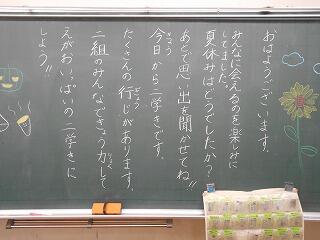 おはようございます。
みんなに会えるのを楽しみに
してました。
夏休みはどうでしたか?
あとで思い出を聞かせてね!!
今日から二学きです。
たくさんの行じがあります。
二組のみんなできょう力して
えがおいっぱいの二学きに
しよう!!